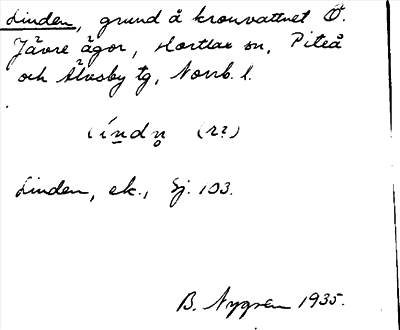 Linden, grund å kronvattnet Ö.
Jävre ägor, Hortlax sn, Piteå
och Älvsby tg, Norrb. l.
líndn̥ (r?)
Linden, ek., Sj. 103.
B. Nygren 1935.